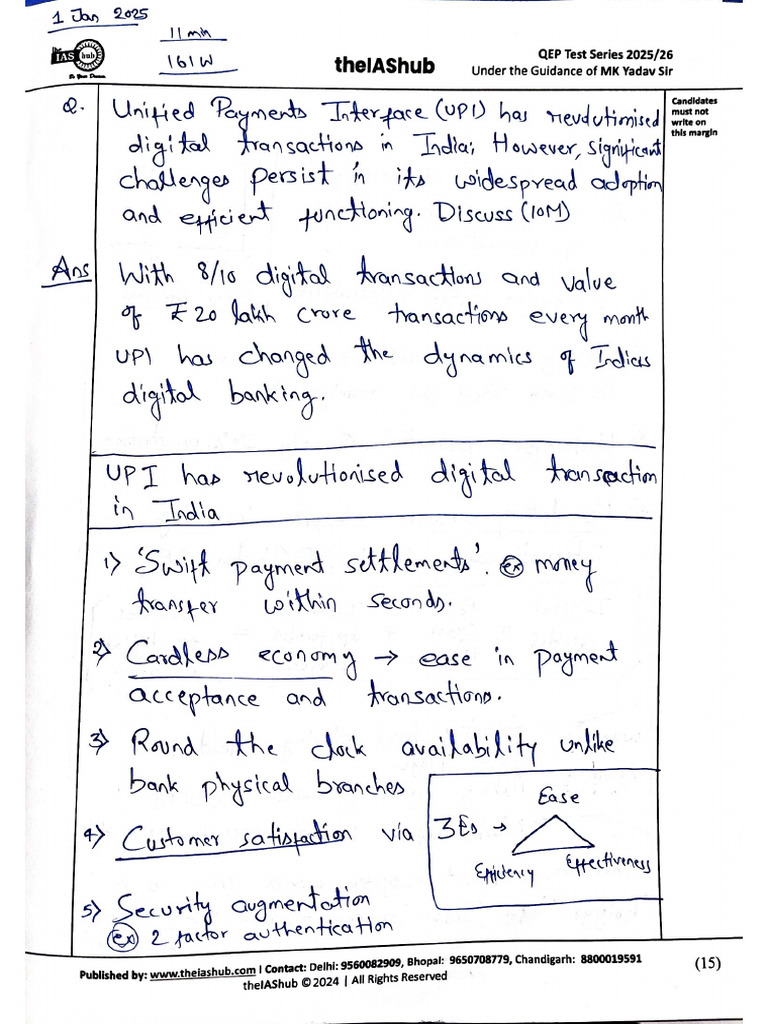 1 Jan 2025
11 min
161 W
The
IAS hub
Be Your Dream
theIAShub
QEP Test Series 2025/26
Under the Guidance of MK Yadav Sir
Candidates
must not
write on
this margin
Q. Unified Payments Interface (UPI) has revolutionised
digital transactions in India; However, significant
challenges persist in its widespread adoption
and efficient functioning. Discuss (10M)
Ans With 8/10 digital transactions and value
of ₹20 lakh crore transactions every month
UPI has changed the dynamics of Indias
digital banking.
UPI has revolutionised digital transaction
in India
1) 'Swift payment settlements'. Ex money
transfer within seconds.
2) Cardless economy → ease in payment
acceptance and transactions.
3) Round the clock availability unlike
bank physical branches
4) Customer satisfaction via
3Es →
Ease
Efficiency
Effectiveness
5) Security augmentation
Ex 2 factor authentication
Published by: www.theiashub.com | Contact: Delhi: 9560082909, Bhopal: 9650708779, Chandigarh: 8800019591
theIAShub © 2024 | All Rights Reserved
(15)